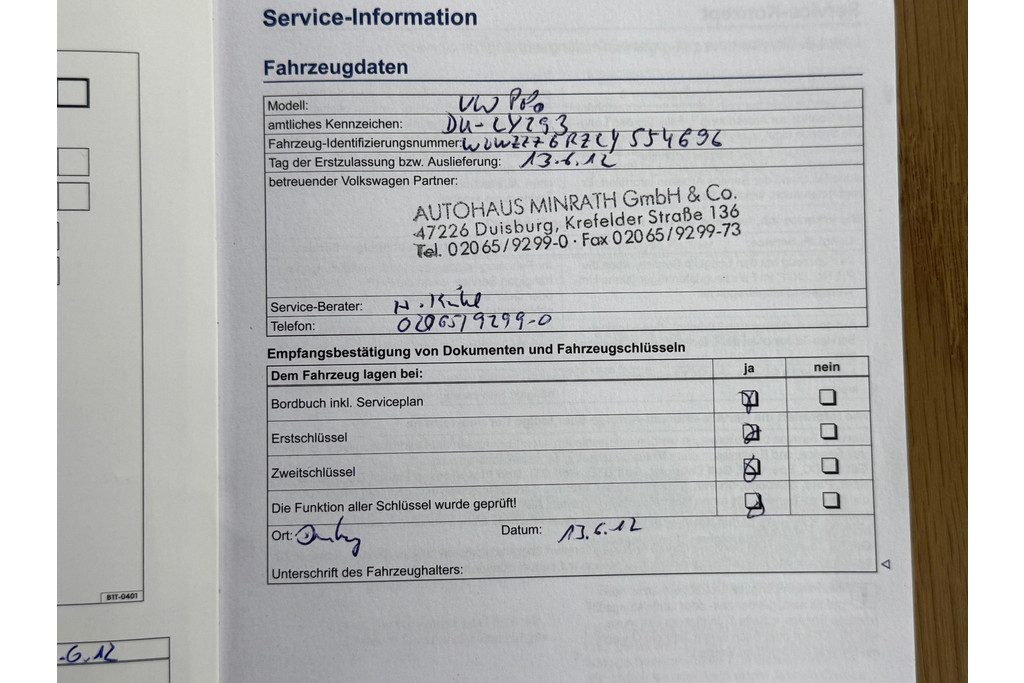 Service-Information
Fahrzeugdaten
Modell: VW Polo
amtliches Kennzeichen: DU-LY293
Fahrzeug-Identifizierungsnummer: WVWZZZ6RZCY554696
Tag der Erstzulassung bzw. Auslieferung: 13.6.12
betreuender Volkswagen Partner:
AUTOHAUS MINRATH GmbH & Co.
47226 Duisburg, Krefelder Straße 136
Tel. 02065/9299-0 · Fax 02065/9299-73
Service-Berater: H.
Telefon: 02065/9299-0
Empfangsbestätigung von Dokumenten und Fahrzeugschlüsseln
Dem Fahrzeug lagen bei: ja nein
Bordbuch inkl. Serviceplan
Erstschlüssel
Zweitschlüssel
Die Funktion aller Schlüssel wurde geprüft!
Ort: Datum: 13.6.12
Unterschrift des Fahrzeughalters:
B1T-0401
.6.12